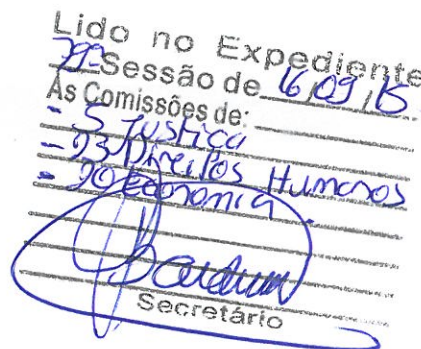 Lido no Expediente
79ª Sessão de 16/09/15
Às Comissões de:
- 5 Justiça
- 23 Direitos Humanos
- 20 Economia
Secretário